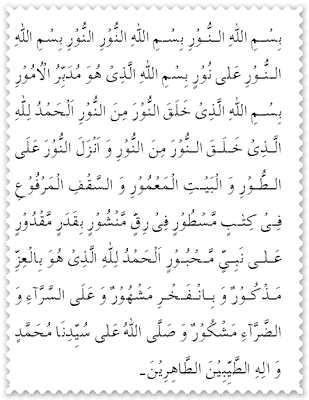 بِسْمِ اللهِ النُّوْرِ بِسْمِ اللهِ النُّوْرِ النُّوْرِ بِسْمِ اللهِ
النُّوْرِ عَلى نُوْرٍ بِسْمِ اللهِ الَّذِىْ هُوَ مُدَبِّرُ الْاُمُوْرِ
بِسْمِ اللهِ الَّذِىْ خَلَقَ النُّوْرَ مِنَ النُّوْرِ اَلْحَمْدُ لِلّٰهِ
الَّذِىْ خَلَقَ النُّوْرَ مِنَ النُّوْرِ وَ اَنْزَلَ النُّوْرَ عَلَى
الطُّوْرِ وَ الْبَيْتِ الْمَعْمُوْرِ وَ السَّقْفِ الْمَرْفُوْعِ
فِىْ كِتٰبٍ مَّسْطُوْرٍ فِىْ رِقٍّ مَّنْشُوْرٍ بِقَدَرٍ مَّقْدُوْرٍ
عَلى نَبِىٍّ مَّحْبُوْرٍ اَلْحَمْدُ لِلّٰهِ الَّذِىْ هُوَ بِالْعِزِّ
مَذْكُوْرٌ وَ بِالْفَخْرِ مَشْهُوْرٌ وَ عَلَى السَّرَّآءِ وَ
الضَّرَّآءِ مَشْكُوْرٌ وَ صَلَّى اللهُ عَلى سَيِّدِنَا مُحَمَّدٍ
وَ اٰلِهِ الطَّيِّبِيْنَ الطَّاهِرِيْنَ۔